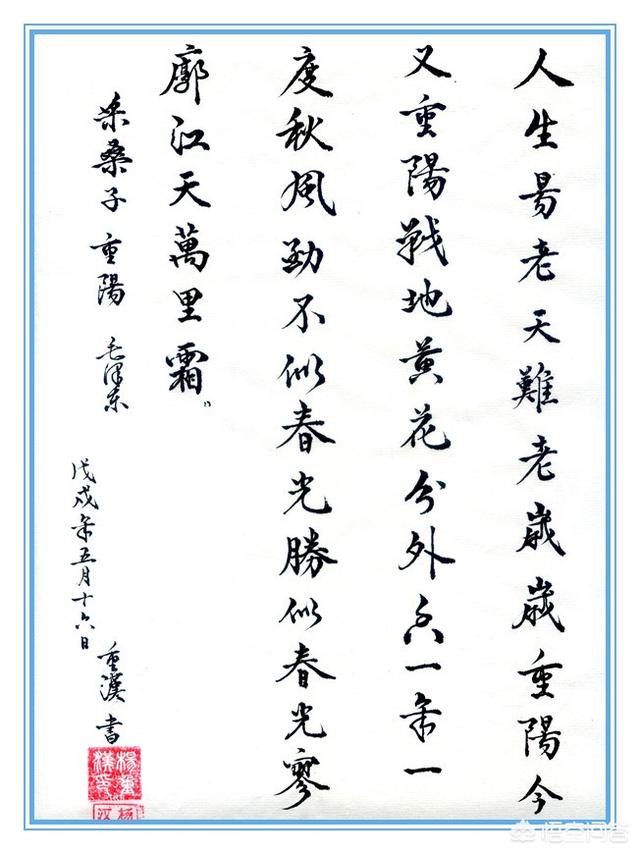 人生易老天難老歲歲重陽今
又重陽戰地黄花分外香一年一
度秋風勁不似春光勝似春光寥
廓江天萬里霜。
采桑子 重陽 毛澤东
戊戌年五月十六日
重漢書
楊重漢印
悟空问答